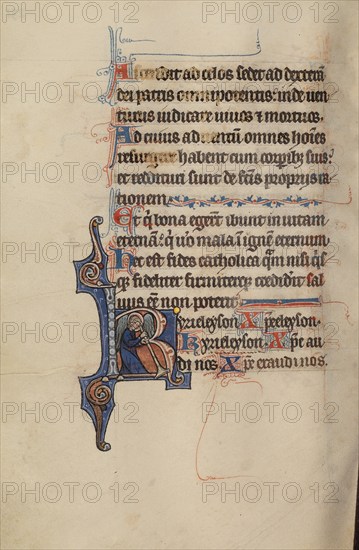 Ascendit ad celos sedet ad dexteram
dei patris omnipotentis: inde ven
turus iudicare uiuos & mortuos.
Ad cuius aduentum omnes hoies
resurgere habent cum corpibȝ suis:
et reddituri sunt de fctis propriis ra
tionem.
Et q̇ bona egert ibunt in uitam
eternā: q̇ u̇o mala ī ignem eternum
Hec est fides catholica quam nisi q̇s
q̇ fideliter firmiterq̇ crediderit sal
uus eē non poterit.
Kyrieleyson Xp̄eleyson.
Kyrieleyson Xp̄e au
di nos Xp̄e exaudi nos.
PHOTO 12